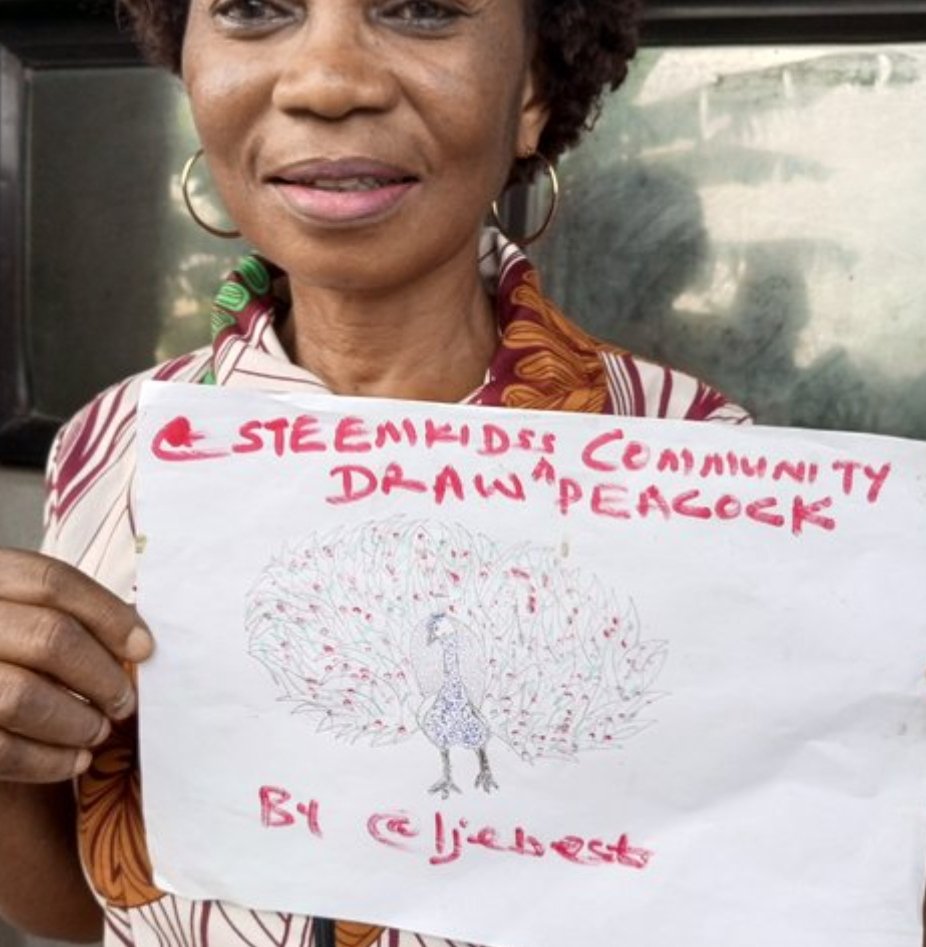 @ STEEMKIDSS COMMUNITY
DRAW A PEACOCK
BY @ijebest